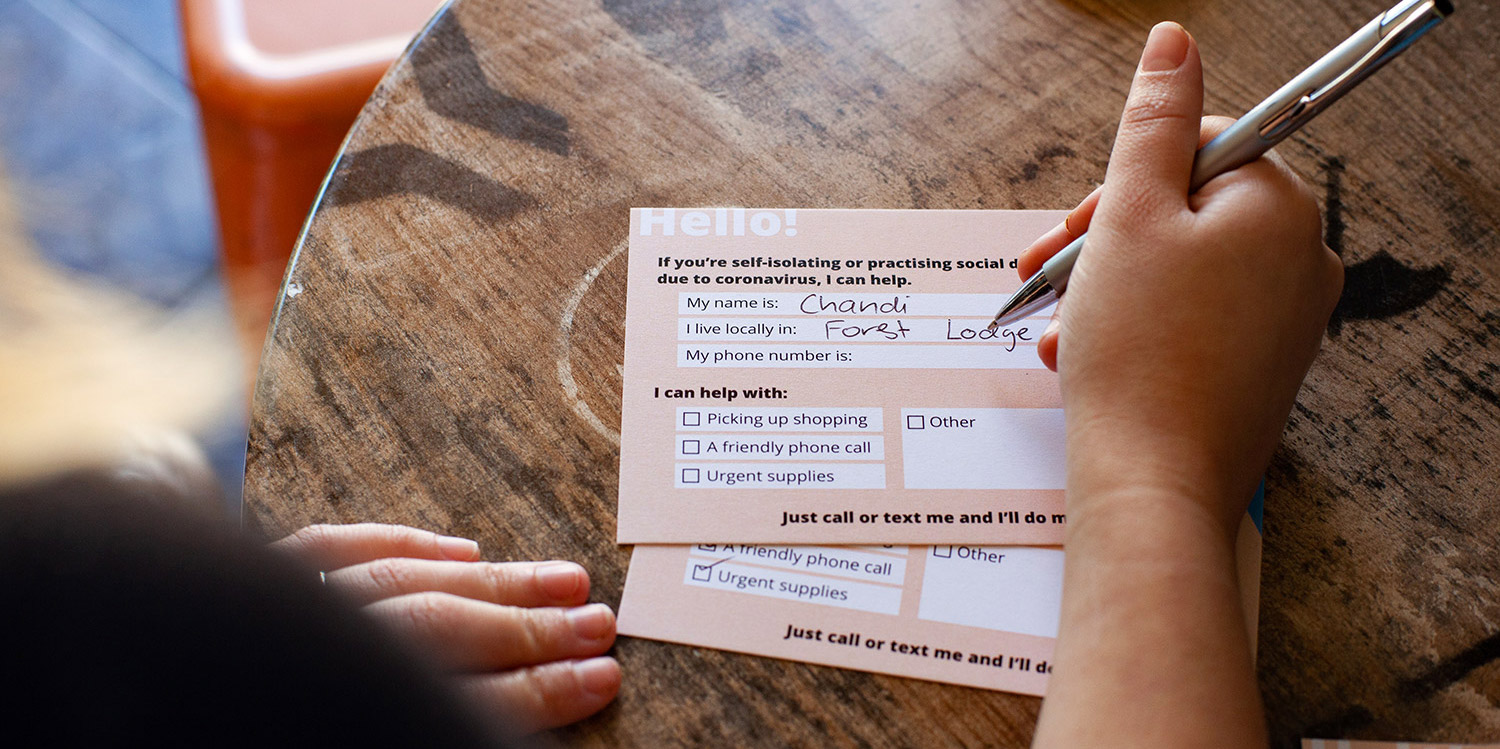 Hello!
If you're self-isolating or practising social
due to coronavirus, I can help.
My name is: Chandi
I live locally in: Forest Lodge
My phone number is:
I can help with:
Picking up shopping
Other
A friendly phone call
Urgent supplies
Just call or text me and I'll do
A friendly phone call
Other
Urgent supplies
Just call or text me and I'll